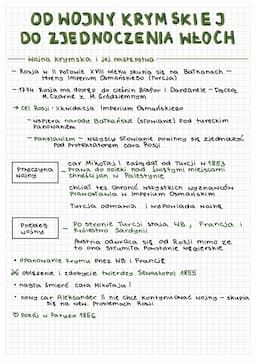 OD WOJNY KRYMSKIEJ
DO ZJEDNOCZENIA WŁOCH
Wojna krymska i jej następstwa
- Rosja w II połowie XVIII wieku skupia się na Bałkanach -
tereny Imperium Osmańskiego (Turcja)
- 1774 Rosja ma dostęp do cieśnin Bosfor i Dardanele - łączą
M. Czarne z M. Śródziemnym
→ cel Rosji: likwidacja Imperium Osmańskiego
- wspiera narody Bałkańskie (Słowianie) pod tureckim
panowaniem
- panslawizm - wszyscy Słowianie powinny się zjednoczyć
pod protektoratem cara Rosji
Przyczyna
wojny
car Mikołaj I zażądał od Turcji w 1853
prawa do opieki nad świętymi miejscami
chrześcijan w Palestynie
chciał też chronić wszystkich wyznawców
prawosławia w Imperium Osmańskim
Turcja odmawia i wypowiada wojnę
Przebieg
wojny
Po stronie Turcji stają WB, Francja i
Królestwo Sardynii
Austria odwraca się od Rosji mimo że
to ona stłumiła Powstanie Węgierskie
• opanowanie Krymu przez WB i Francję
oblężenie i zdobycie twierdzy Sewastopol 1855
• nagła śmierć cara Mikołaja I
• nowy car Aleksander II nie chce kontynuować wojny - skupia
się na wew. problemach Rosji
pokój w Paryżu 1856